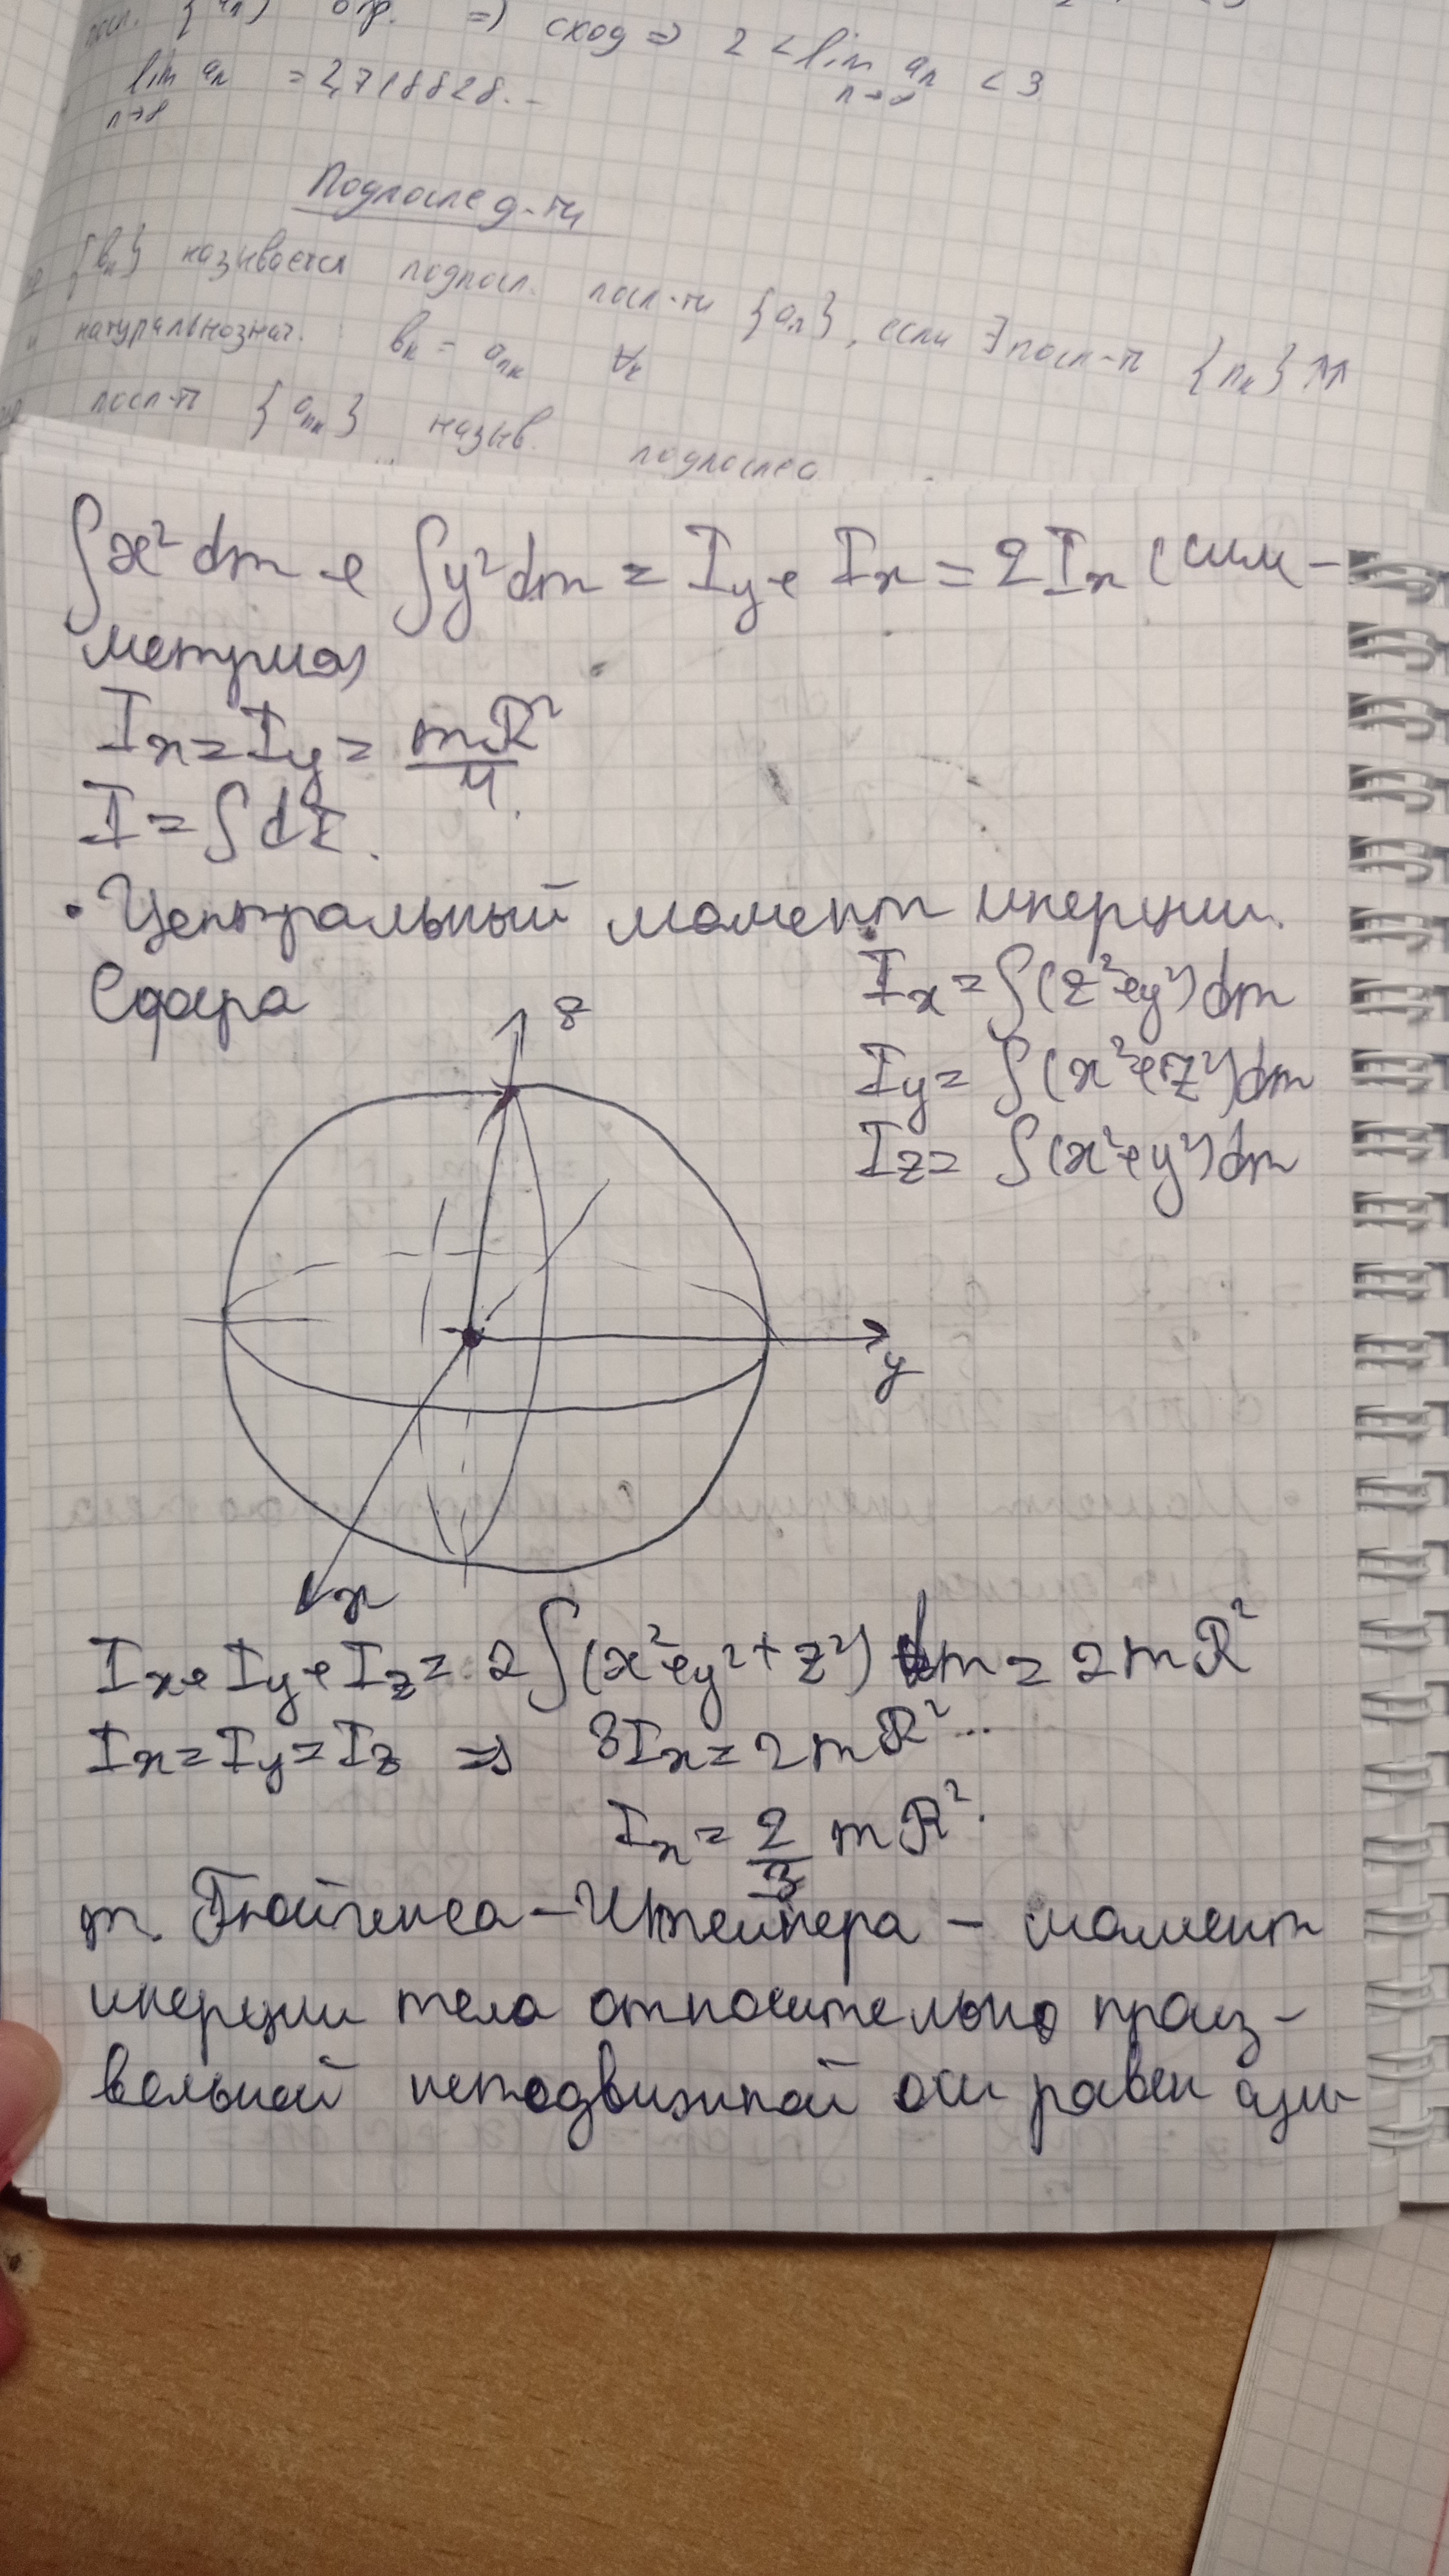 {aₙ} огр. => сход => 2 < lim aₙ < 3
n→∞
lim aₙ = 2,718828...
n→∞
Подпослед-ти
{bₖ} называется подпосл. посл-ти {aₙ}, если ∃ посл-ть {nₖ} ↑↑
натуральнознач. : bₖ = aₙₖ ∀ₖ
посл-ть {aₙₖ} назыв. подпослед
∫x²dm + ∫y²dm = Iy + Ix = 2Ix (сим-
метрия)
Ix = Iy = mR²/4.
I = ∫dI.
• Центральный момент инерции.
Сфера
Ix = ∫(z²+y²)dm
Iy = ∫(x²+z²)dm
Iz = ∫(x²+y²)dm
z
y
x
Ix + Iy + Iz = 2∫(x²+y²+z²)dm = 2mR²
Ix = Iy = Iz => 3Ix = 2mR²
Ix = 2/3 mR².
т. Гюйгенса-Штейнера - момент
инерции тела относительно произ-
вольной неподвижной оси равен